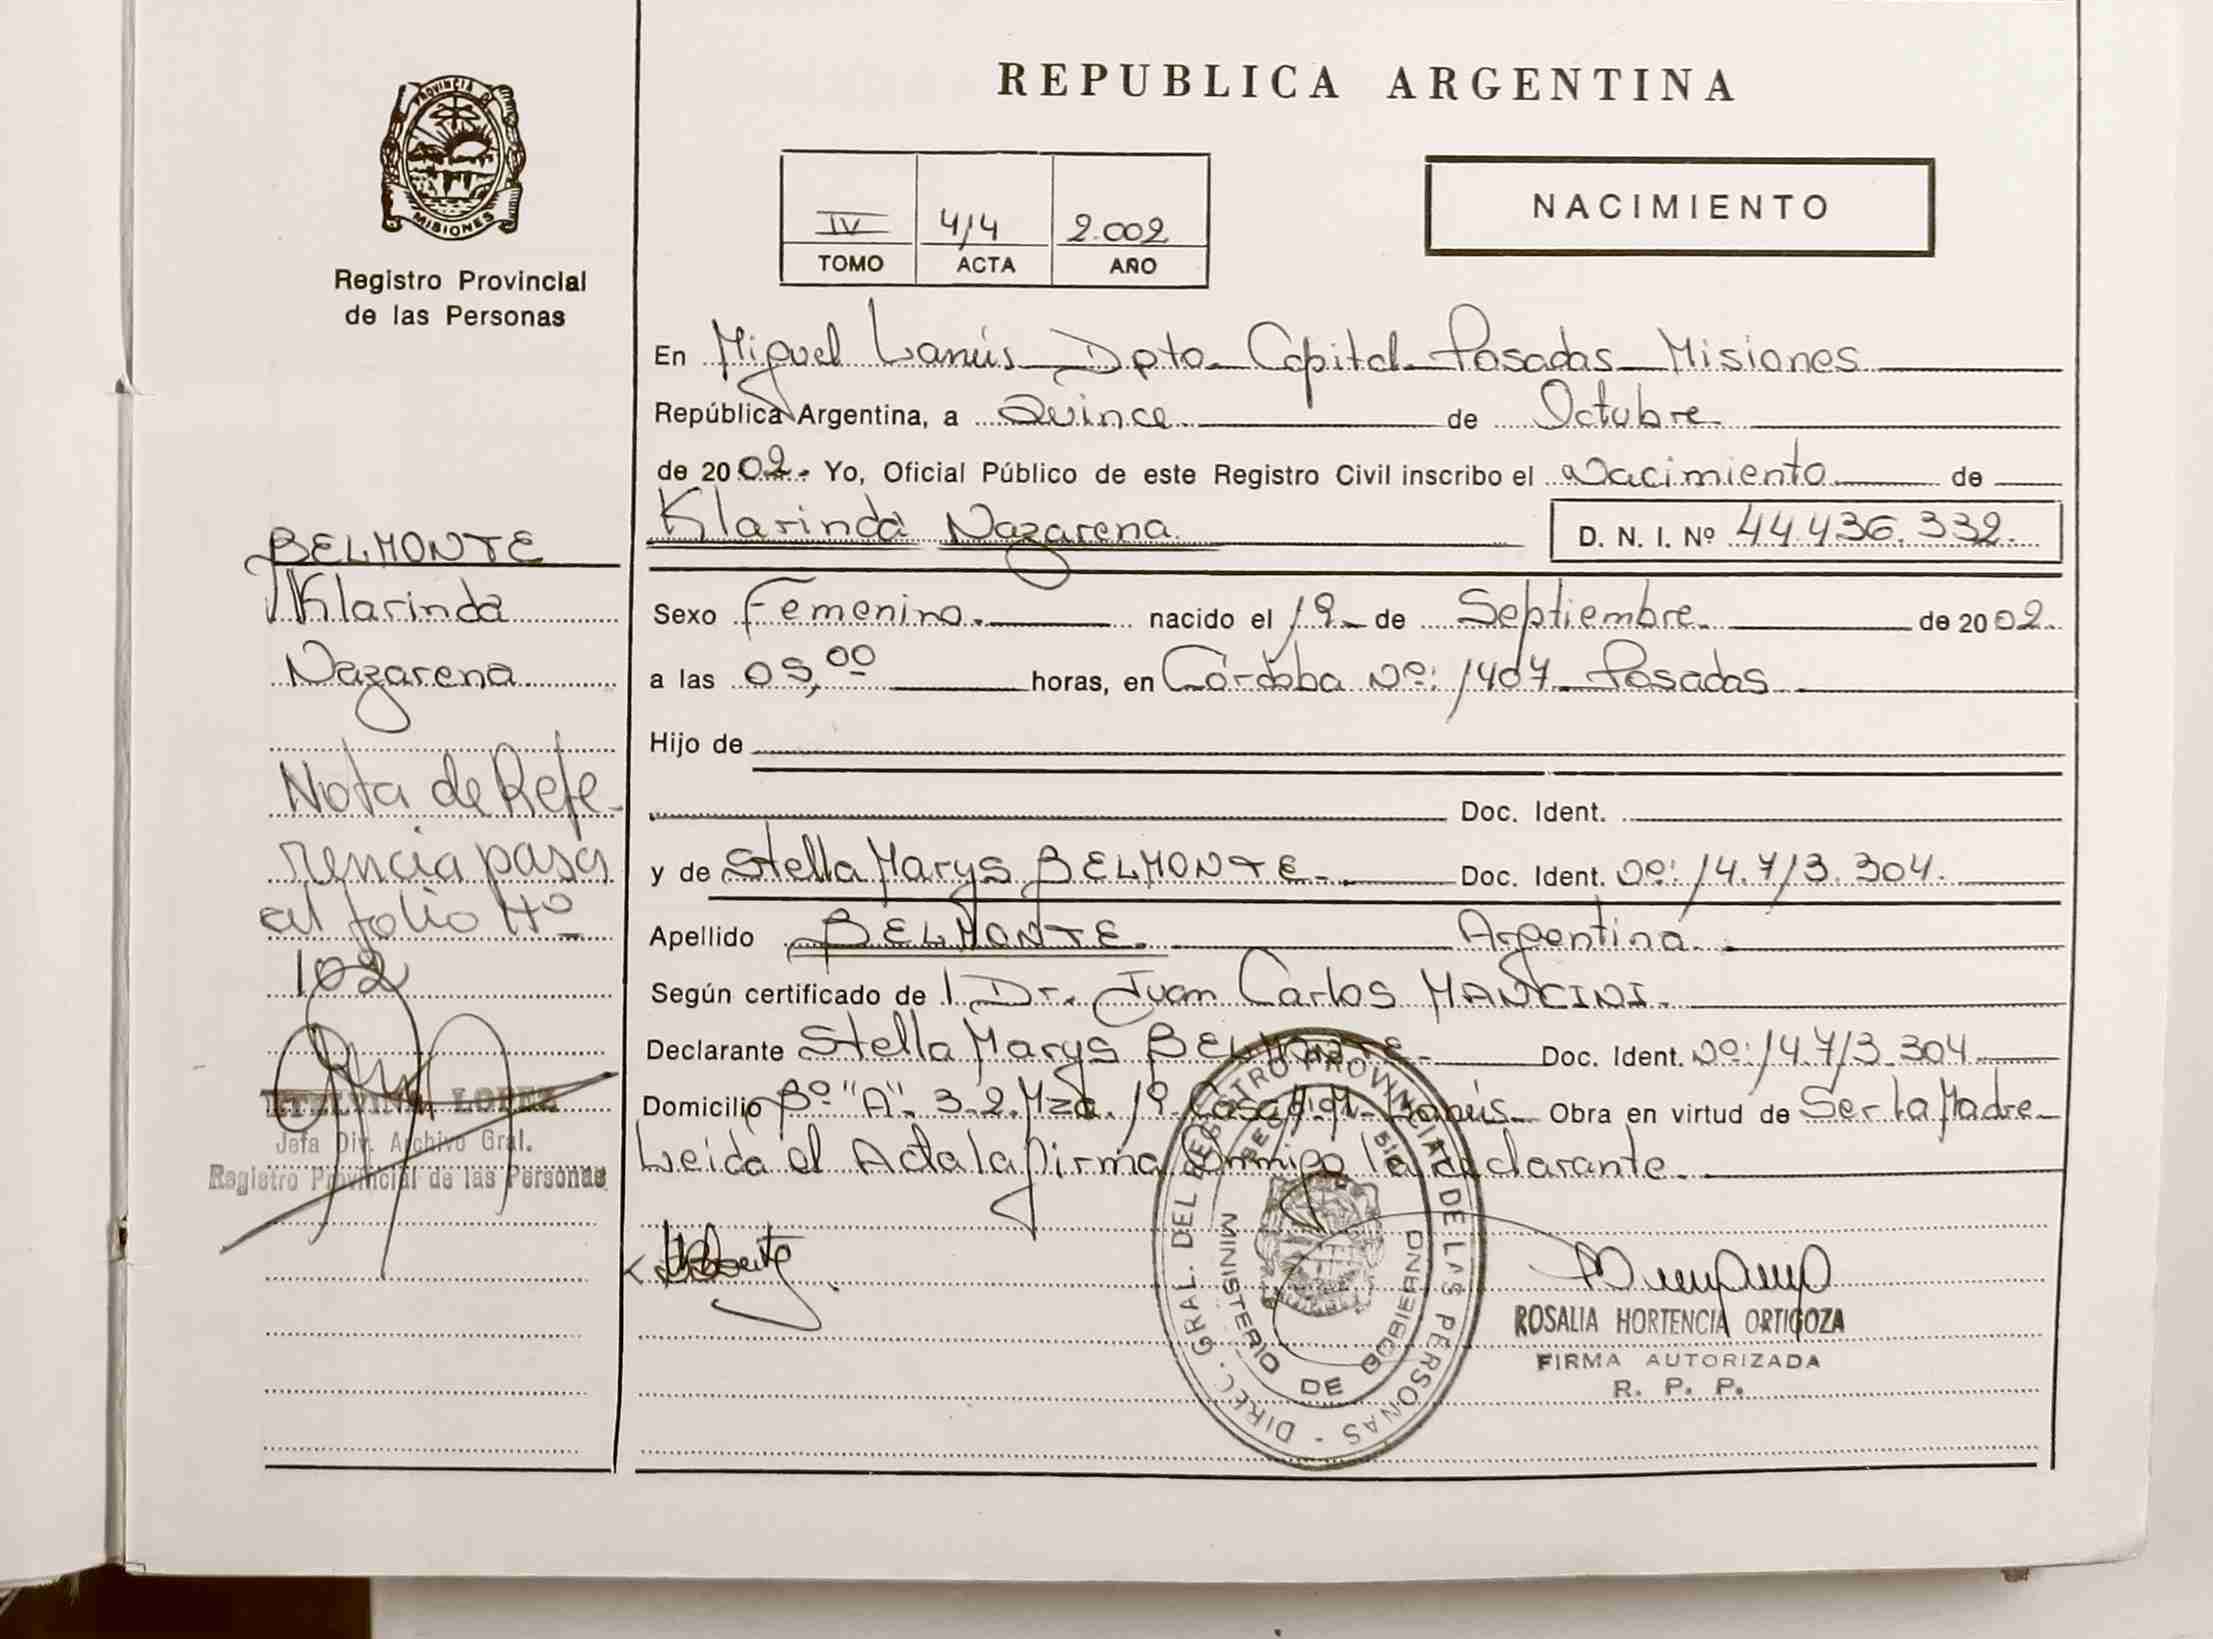 PROVINCIA D
MISIONES
Registro Provincial
de las Personas
BELMONTE
Klarinda
Nazarena
Nota de Refe-
rencia pasa
al folio Nº
102
LOPEZ
Jefa Div. Archivo Gral.
Registro Provincial de las Personas
REPUBLICA ARGENTINA
IV 414 2.002
TOMO ACTA AÑO
NACIMIENTO
En Miguel Lanús Dpto Capital Posadas Misiones
República Argentina, a Quince de Octubre
de 2002. Yo, Oficial Público de este Registro Civil inscribo el Nacimiento de
Klarinda Nazarena D. N. I. Nº 44.436.332.
Sexo Femenino. nacido el 19 de Septiembre de 2002.
a las 05,00 horas, en Córdoba Nº: 1407 Posadas
Hijo de
Doc. Ident.
y de Stella Marys BELMONTE. Doc. Ident. Nº: 14.713.304.
Apellido BELMONTE. Argentina.
Según certificado de l Dr. Juan Carlos MANCINI.
Declarante Stella Marys BELMONTE Doc. Ident. Nº: 14.713.304
Domicilio Bº "A". 3.2. Mza. 19 Casa Lanús Obra en virtud de Ser La Madre
Leida el Acta la firma Conmigo la declarante.
DIREC. GRAL. DEL REGISTRO PROVINCIAL DE LAS PERSONAS
MINISTERIO DE GOBIERNO
ROSALIA HORTENCIA ORTIGOZA
FIRMA AUTORIZADA
R. P. P.